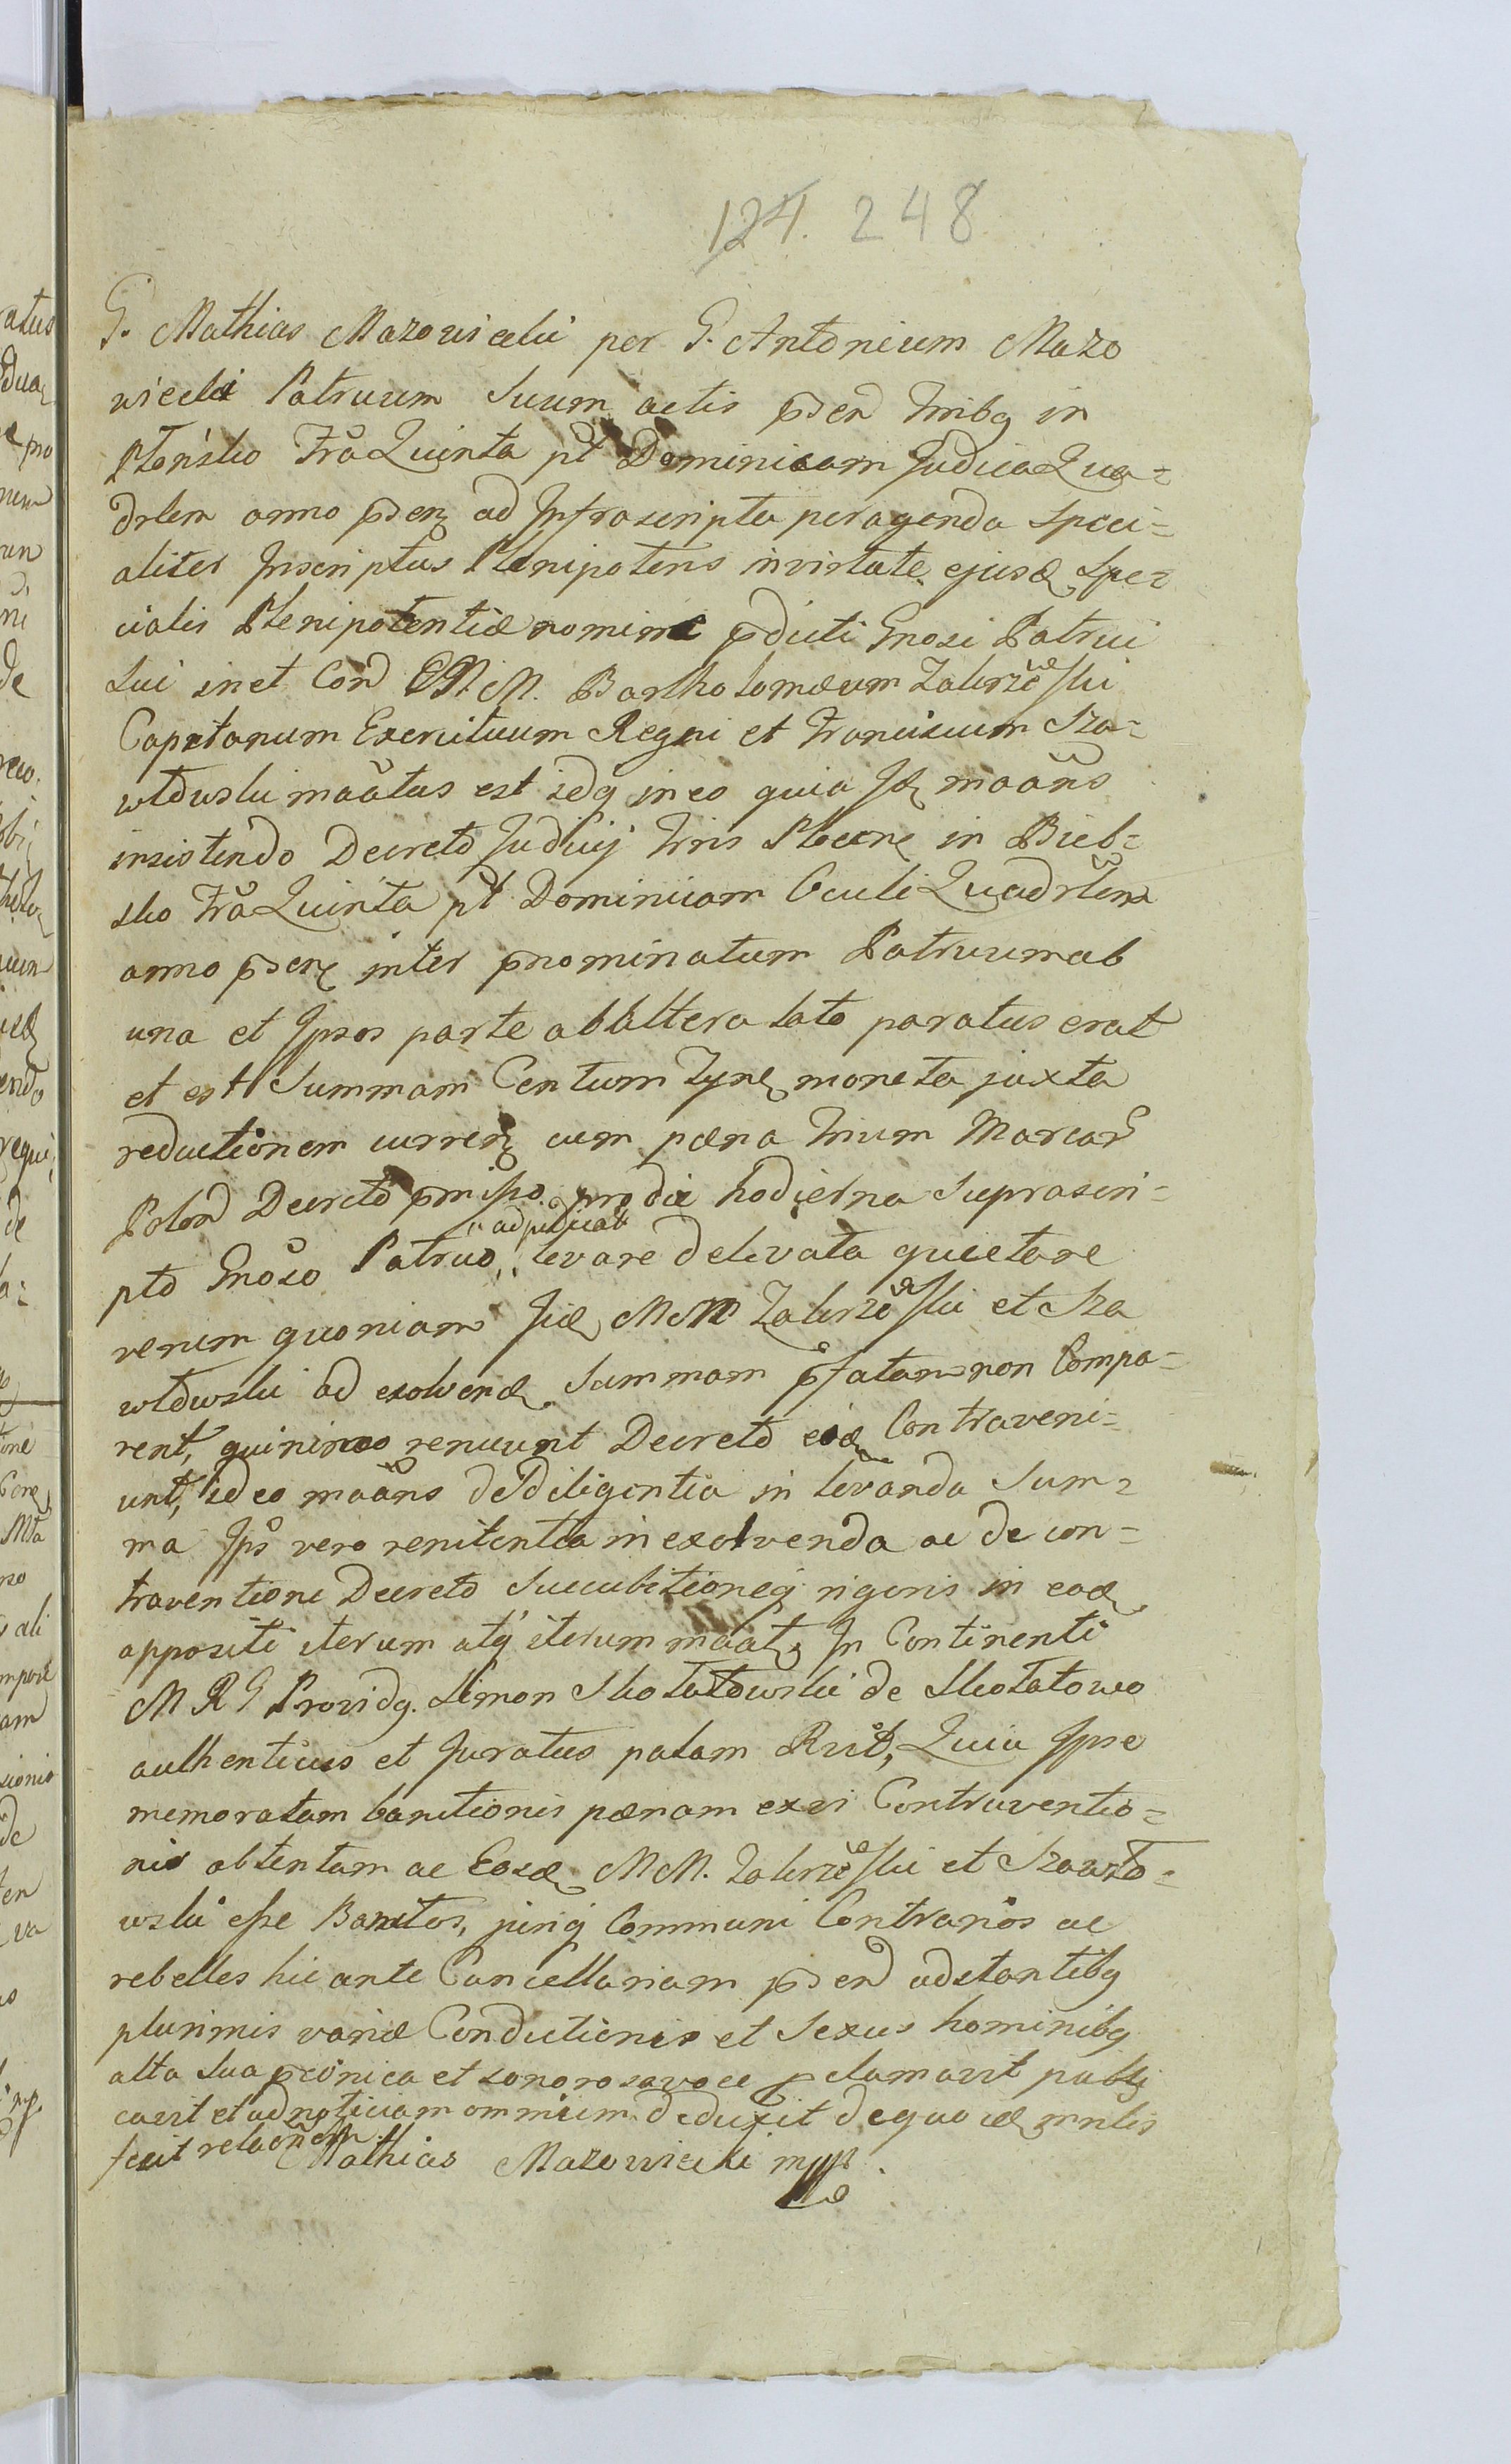 124. 248
G. Mathias Mazowiecki per G. Antonium Mazo
wiecki Patruum Suum actis p̄sen Trribq in
Płońsko Fr̃a Quinta pt̃ Dominicam Judica Qua=
drlem anno p̄sen ad Infrascripta peragenda Speci=
aliter Inscriptus Plenipotens in virtute ejusd Spe=
cialis Plenipotentiæ nomine p̄dicti Gnosi Patrui
Sui in et Con MM. Bartholomæum Zakrzewski
Capitanum Exercituum Regni et Franciscum Sza=
włowski maãtus est idq in eo quia Id maãns
insistendo Decreto Judicij Trris Plocen in Biel=
sko Fr̃a Quinta pt̃ Dominicam Oculi Quadrlem
anno p̄sen inter p̄nominatum Patruum ab
una et Ipsos parte ab altera lato paratus erat
et est Summam Centum Tynf moneta juxta
reductionem curren cum pæna trium Marcar
Polon Decreto p̄misso pro die hodierna Suprascri=
pto Gnoso Patruo, adjudicat levare de levata quietare
verum quoniam Iid MM Zakrzewski et Sza
włowski ad exolvend Summam p̄fatam non Compa=
rent, quinimo renuunt Decreto eid Contraveni=
unt, ideo maãns de Diligentia in levanda Sum=
ma Ips vero renitentia in exolvenda ac de con=
traventione Decreto Succubitioneq rigoris in eod
appositi iterum atq iterum maãt, In Continenti
M R G Providq. Simon Skołatowski de Skołatowo
authenticus et Juratus palam Rvit, Quia Ipse
memoratam banitionis pænam ex vi Contraventio=
nis obtentam ac Eosd MM. Zakrzewski et Szawło=
wski esse Banitos, juriq Communi Contrarios ac
rebelles hic ante Cancellariam p̄sen adstantibq
plurimis variæ Conditionis et Sexus hominibq
alta sua p̄conica et sonorosa voce p̄clamavit publi
cavit et ad notitiam omnium deduxit de quo id mnlis
fecit relaõnem.
Mathias Mazowiecki mpp